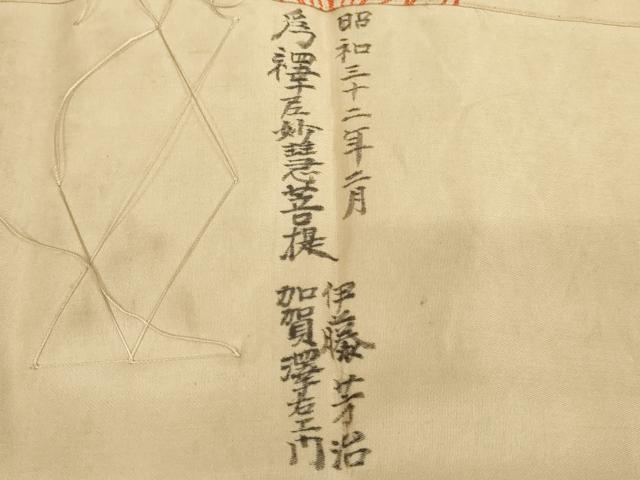 昭和三十二年二月 伊藤芽治
為釋尼妙慧菩提 加賀澤右エ門